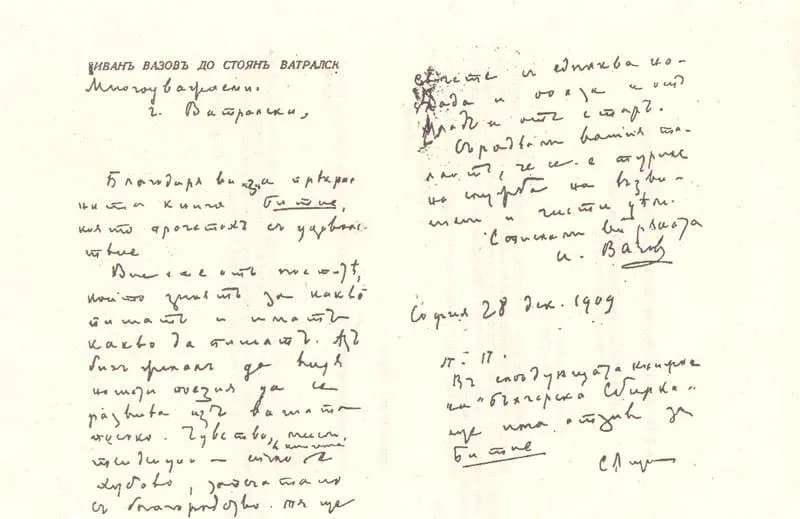 ИВАНЪ ВАЗОВЪ ДО СТОЯНЪ ВАТРАЛСК
Многоуважаеми
г. Ватралски,
Благодаря ви за прѣкрас
ната книга Битие,
която прочетохъ съ удоволс-
твие
Вие сте отъ поетитѣ,
които знаятъ за какво
пишатъ и иматъ
какво да пишатъ. Азъ
бихъ желалъ да видя
нашата поезия да се
развива изъ вашата
посока. Чувство, мисъл,
хубаво,
съ благородство. тя ще
се чете съ еднаква на-
слада и
младъ и отъ старъ.
Сърадвам вашия та-
лантъ, че се е турилъ
на служба на възви-
шени и чисти цѣли.
Стискамъ ви рѫката
И. Вазов
София 28 дек. 1909
П. П.
Въ слѣдующата книжка
на "Българска Сбирка"
ще има отзив за
Битие